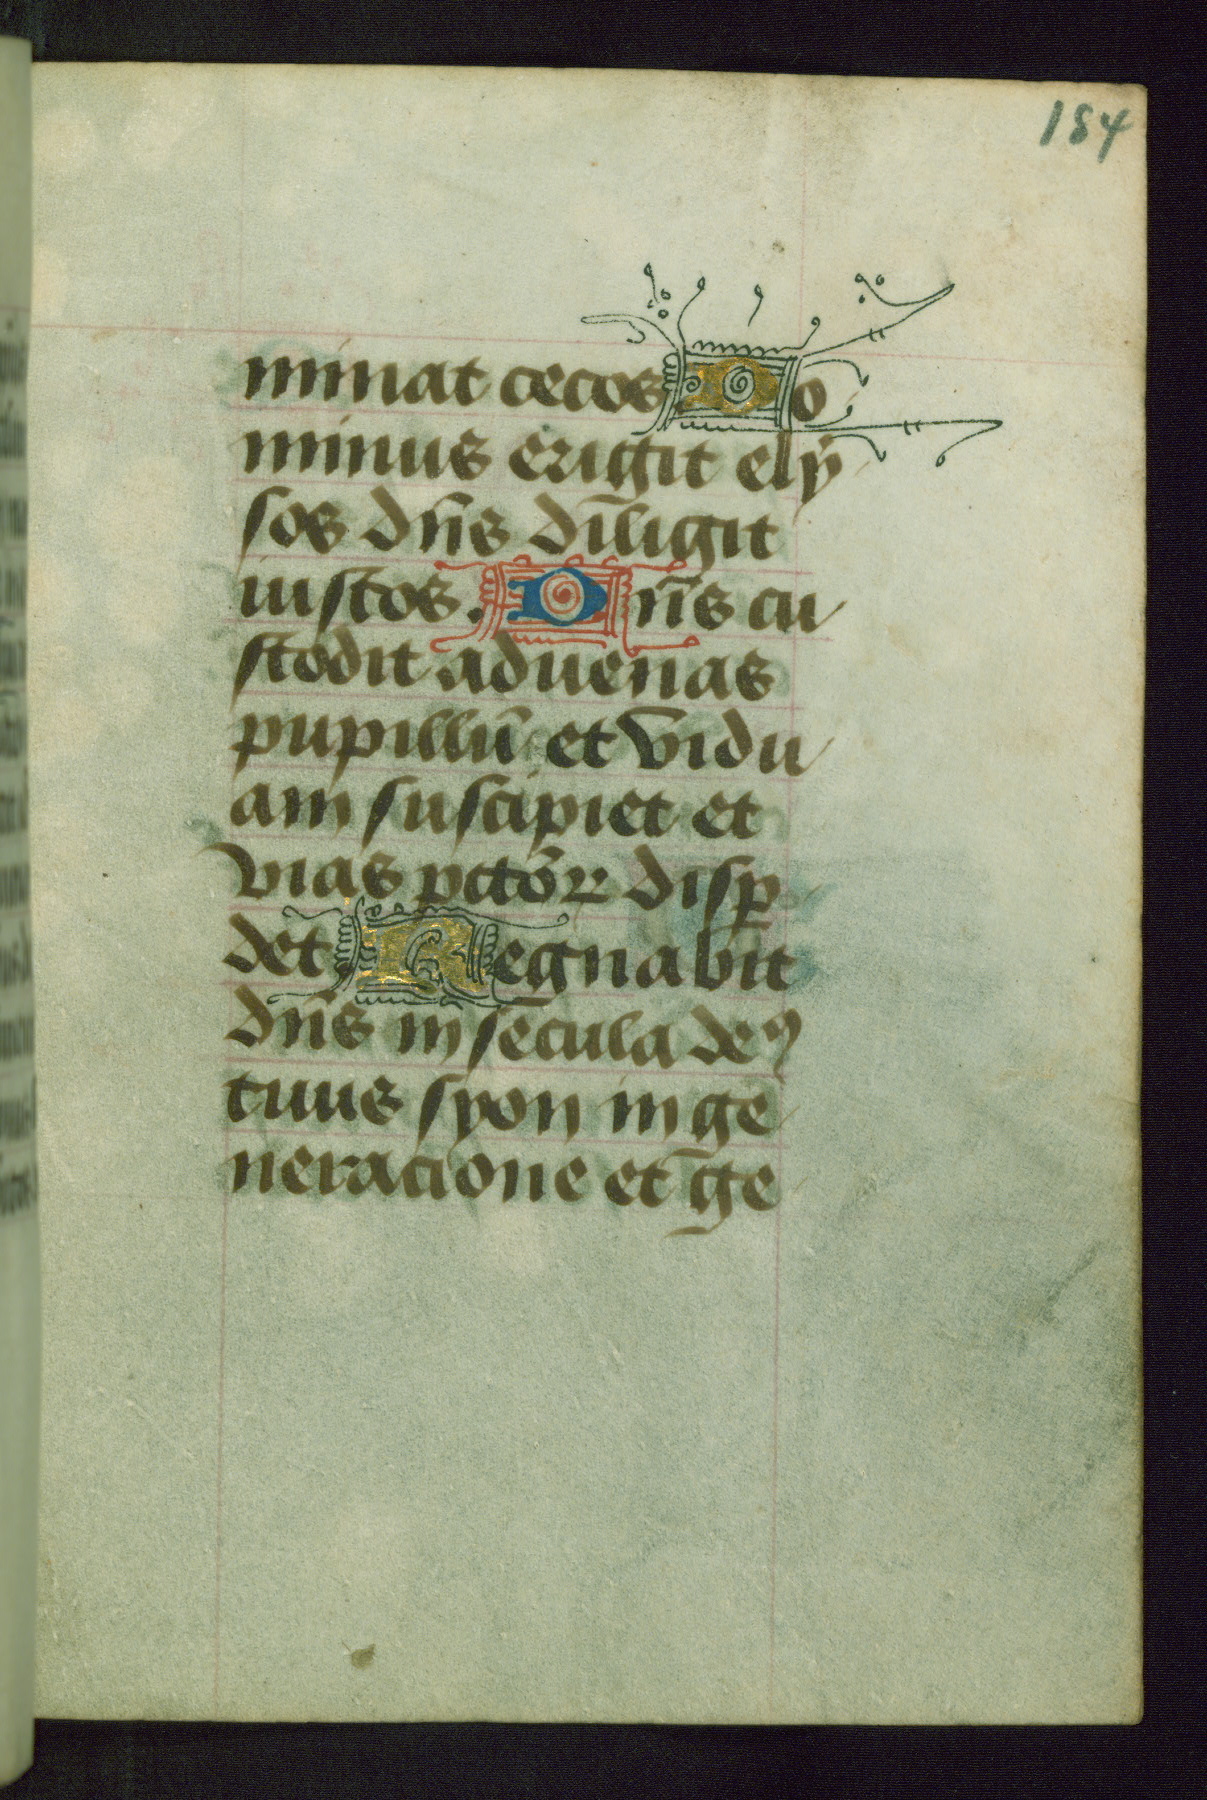 184
minat cecos. Do
minus erigit ely
sos dn̄s dīligit
iustos. Dn̄s cu
stodit aduenas
pupillū et vidu
am suscipiet et
vias pctōꝝ disꝑ
det. Regnabit
dn̄s in secula deꝰ
tuus syon in ge
neracione et ge